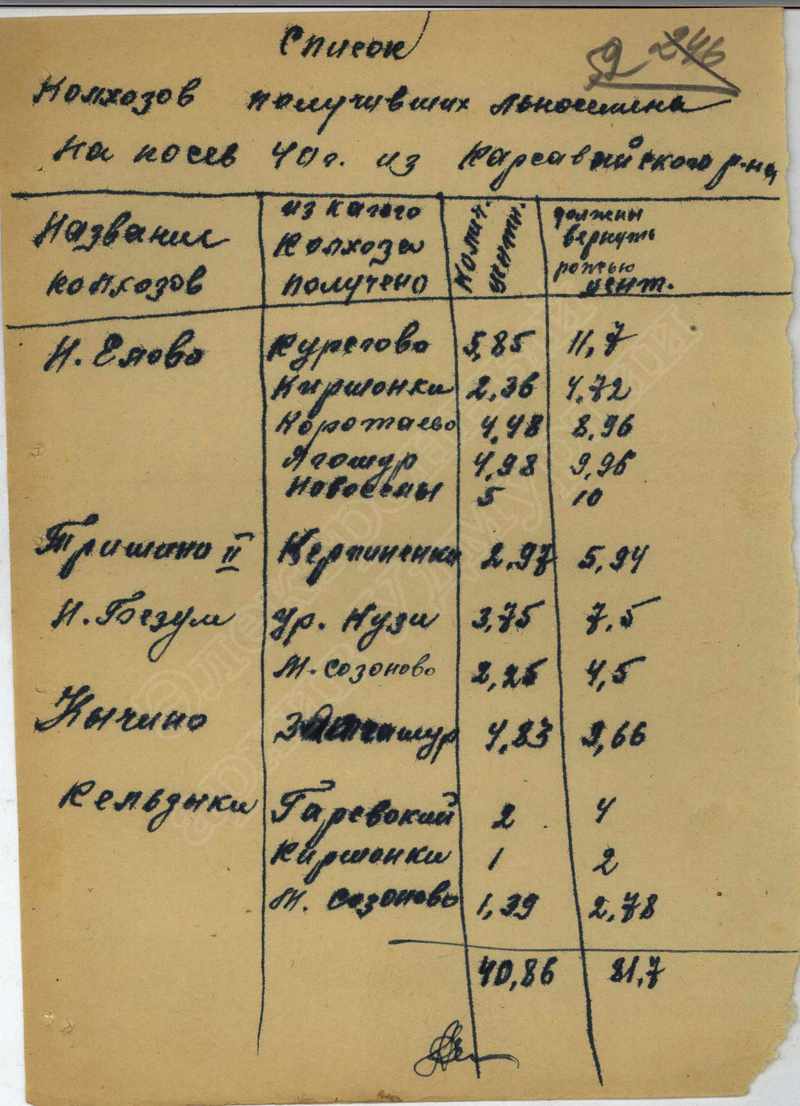 Список
52 246
Колхозов получивших льносемена
на посев 40 г. из Карсавайского р-на
Название колхозов
из какого колхоза получено
колич. центн.
должны вернуть рожью цент.
Н. Елово Курегово 5,85 11,7
Киршонки 2,36 4,72
Коротаево 4,48 8,96
Ягошур 4,98 9,96
Новоселы 5 10
Тришино II 2,97 5,94
Н. Безум Ур. Нузи 3,75 7,5
М. Созоново 2,25 4,5
Кычино 4,83 9,66
Кельдыки Гаревский 2 4
Киршонки 1 2
М. Созоново 1,39 2,78
40,86 81,7